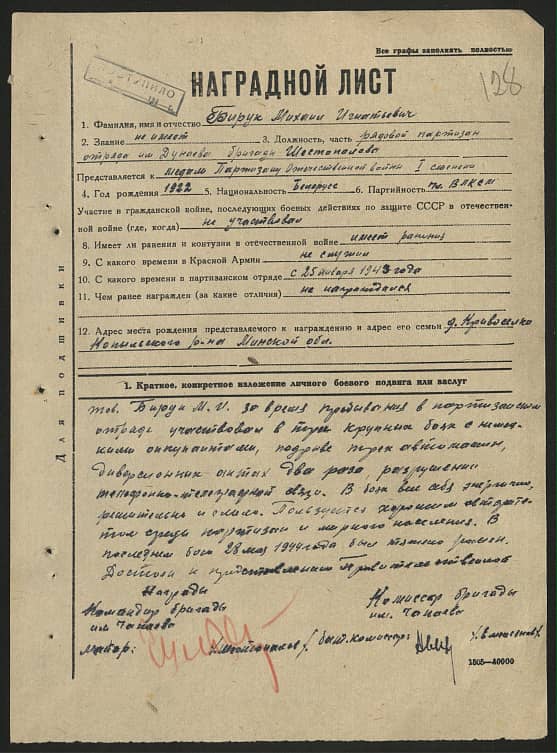 Все графы заполнять полностью
ПОСТУПИЛО
128
НАГРАДНОЙ ЛИСТ
1. Фамилия, имя и отчество Бирук Михаил Игнатьевич
2. Звание не имеет 3. Должность, часть рядовой партизан
отряда им Дунаева бригади Шестопалова
Представляется к медали Партизану Отечественной войны I степени
4. Год рождения 1922 5. Национальность Беларусс 6. Партийность чл. ВЛКСМ
Участие в гражданской войне, последующих боевых действиях по защите СССР в отечествен-
ной войне (где, когда) не участвовал
8. Имеет ли ранения и контузии в отечественной войне имеет ранения
9. С какого времени в Красной Армии не служил
10. С какого времени в партизанском отряде с 25 января 1943 года
11. Чем ранее награжден (за какие отличия) не награждался
12. Адрес места рождения представляемого к награждению и адрес его семьи д. Кривоселко
Копыльского р-на Минской обл.
Для подшивки
1. Краткое, конкретное изложение личного боевого подвига или заслуг
тов. Бирук М. И. за время пребывания в партизанском
отряде участвовал в трех крупных боях с немец-
кими оккупантами, подрыве трех автомашин,
диверсионных актах два раза, разрушении
телефонно-телеграфной связи. В боях вел себя энергично,
решительно и смело. Пользуется хорошим авторите-
том среди партизан и мирного населения. В
последнем бою 28 мая 1944 года был тяжело ранен.
Достоин к представлению Правительственной
Награды
Командир бригады
им. Чапаева
майор: /Шестопалов/
Комиссар бригады
им. Чапаева
бат. комиссар:
1505—40000